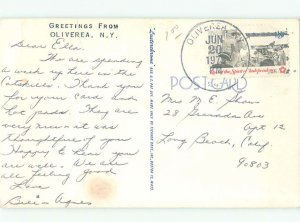 GREETINGS FROM
OLIVEREA, N.Y.
Dear Ella.
We are spending
a week up here in the
Catskills. Thank you
for your card and
hot pads. They are
very nice it was
thoughtful of you.
Happy to hear you
are well. We are
all feeling good
Love
Bill & Agnes
1.00
OLIVEREA
JUN
20
POST CARD
the Spirit of Independence
Mrs M E Shaw
28 Granada Ave
Apt 12
Long Beach, Calif.
90803